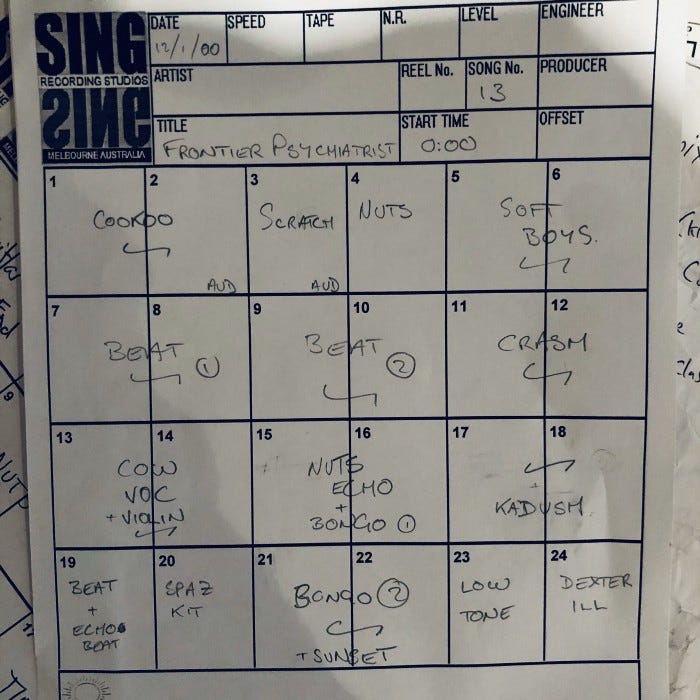 SING
RECORDING STUDIOS
SING
MELBOURNE AUSTRALIA
DATE SPEED TAPE N.R. LEVEL ENGINEER
12/1/00
ARTIST REEL No. SONG No. PRODUCER
13
TITLE START TIME OFFSET
FRONTIER PSYCHIATRIST 0:00
1 2 3 4 5 6
COOKOO SCRATCH NUTS SOFT
BOYS.
AUD AUD
7 8 9 10 11 12
BEAT 1 BEAT 2 CRASH
13 14 15 16 17 18
COW NUTS
VOC ECHO
+ VIOLIN + + KADUSH
BONGO 1
19 20 21 22 23 24
BEAT SPAZ BONGO 2 LOW DEXTER
+ KIT TONE ILL
ECHO
BEAT + SUNSET